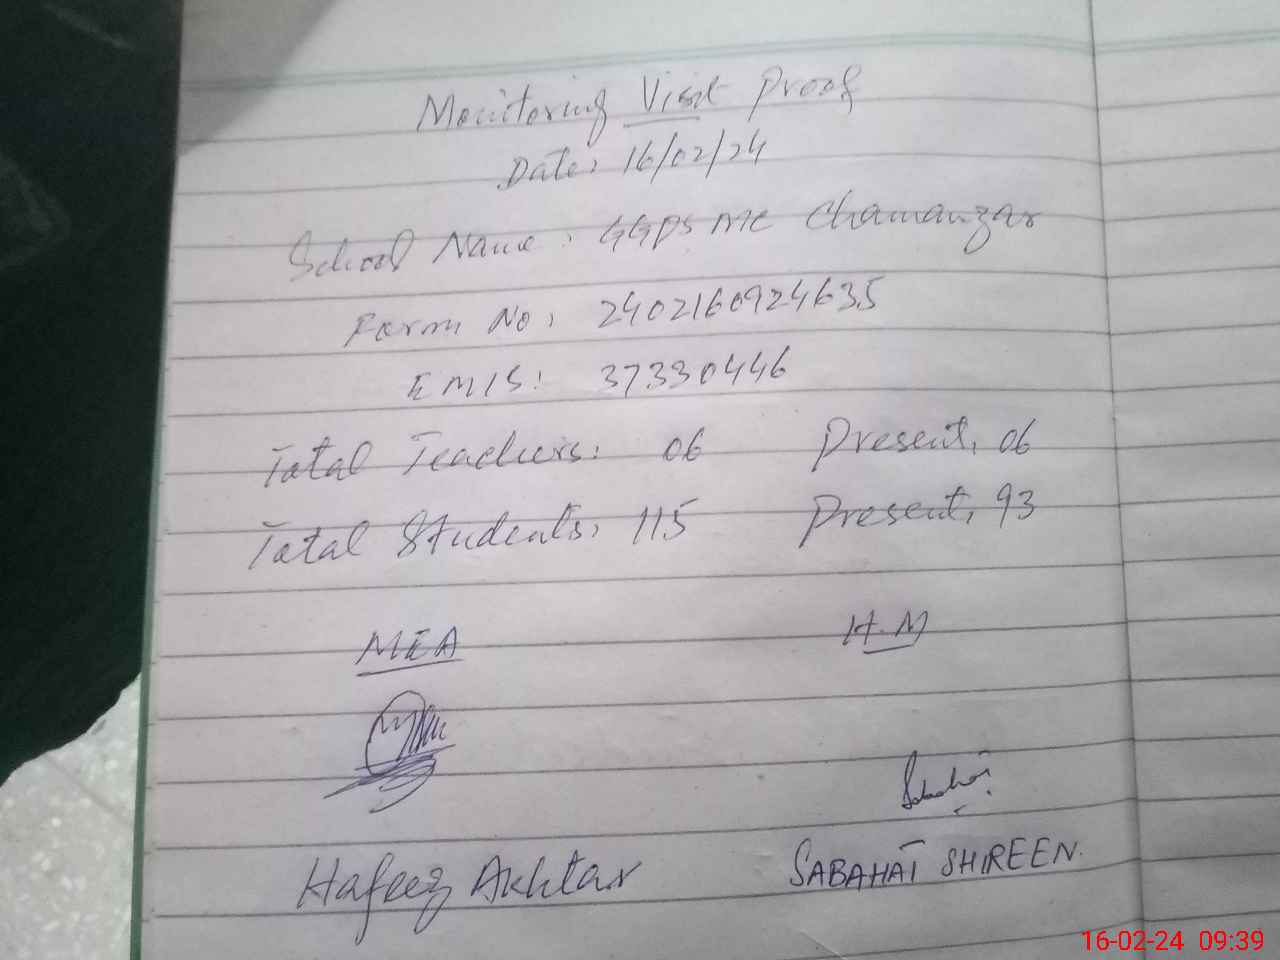 Monitoring Visit Proof
Date: 16/02/24
School Name: GGPS MC Chamanzar
Form No: 2402160924635
EMIS: 37330446
Total Teachers: 06 Present: 06
Total Students: 115 Present: 93
MEA H.M
Sabahat
Hafeez Akhtar SABAHAT SHIREEN.
16-02-24 09:39